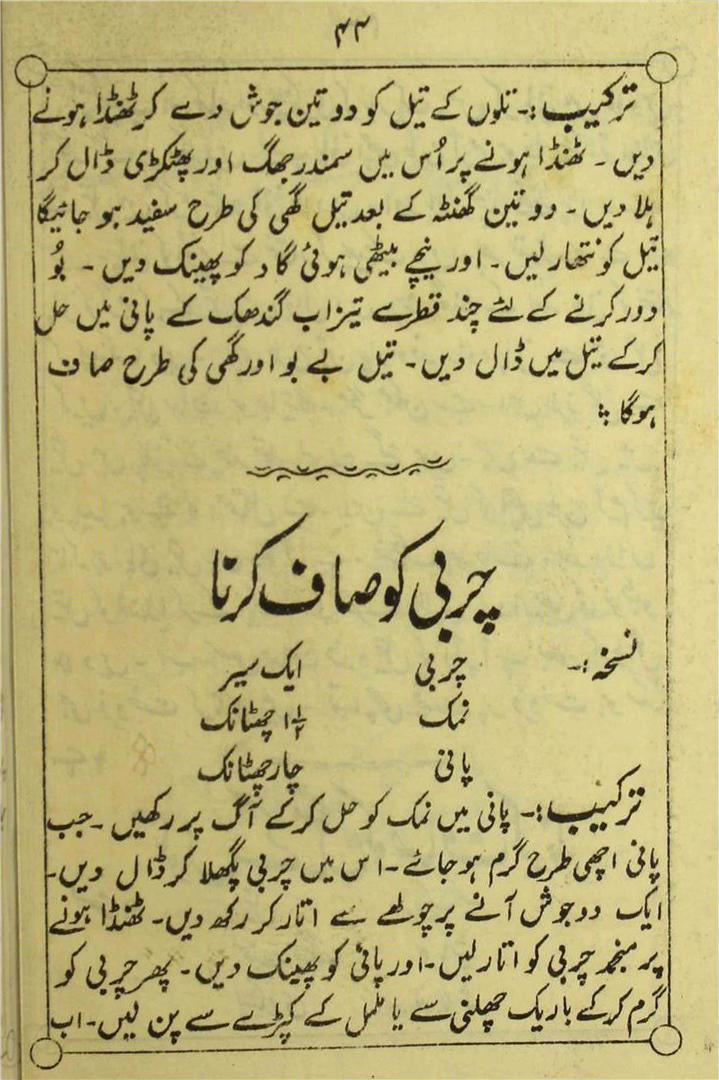 ۴۴
ترکیب :۔ تلوں کے تیل کو دو تین جوش دے کر ٹھنڈا ہونے
دیں ۔ ٹھنڈا ہونے پر اُس میں سمندر جھگ اور پھٹکڑی ڈال کر
ہلا دیں ۔ دو تین گھنٹہ کے بعد تیل گھی کی طرح سفید ہو جائیگا
تیل کو نتھار لیں ۔ اور نیچے بیٹھی ہوئی گاد کو پھینک دیں ۔ بُو
دور کرنے کے لئے چند قطرے تیزاب گندھک کے پانی میں حل
کر کے تیل میں ڈال دیں ۔ تیل بے بو اور گھی کی طرح صاف
ہوگا ؞
چربی کو صاف کرنا
نسخہ :۔ چربی ایک سیر
نمک ۱½ چھٹانک
پانی چار چھٹانک
ترکیب :۔ پانی میں نمک کو حل کرکے آگ پر رکھیں ۔ جب
پانی اچھی طرح گرم ہو جائے ۔ اس میں چربی پگھلا کر ڈال دیں ۔
ایک دو جوش آنے پر چولھے سے اتار کر رکھ دیں ۔ ٹھنڈا ہونے
پر منجمد چربی کو اتار لیں ۔ اور پانی کو پھینک دیں ۔ پھر چربی کو
گرم کر کے باریک چھلنی سے یا ململ کے کپڑے سے پن لیں ۔ اب